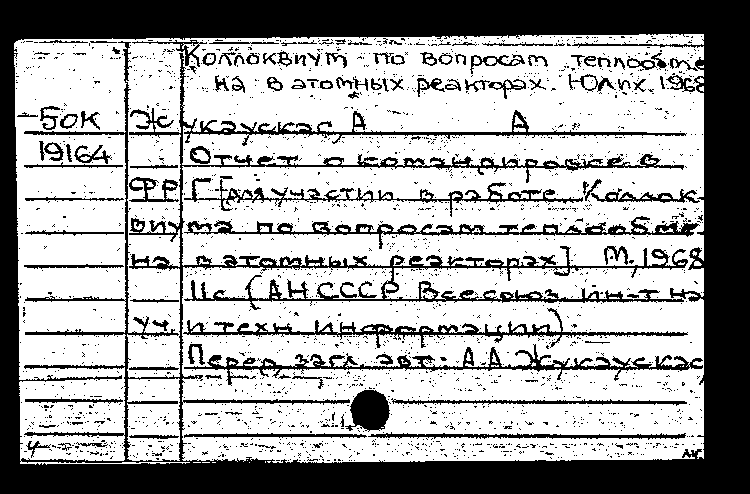 Коллоквиум по вопросам теплообме
на в атомных реакторах. Юлих. 1968
БОК Жукаускас, А А
19164 Отчет о командировке в
ФРГ [для участии в работе Коллок-
виума по вопросам теплообме-
на в атомных реакторах]. М., 1968
11с (АН СССР. Всесоюз. ин-т на
уч. и техн. информации).
Перед загл. авт: А.А. Жукаускас
4